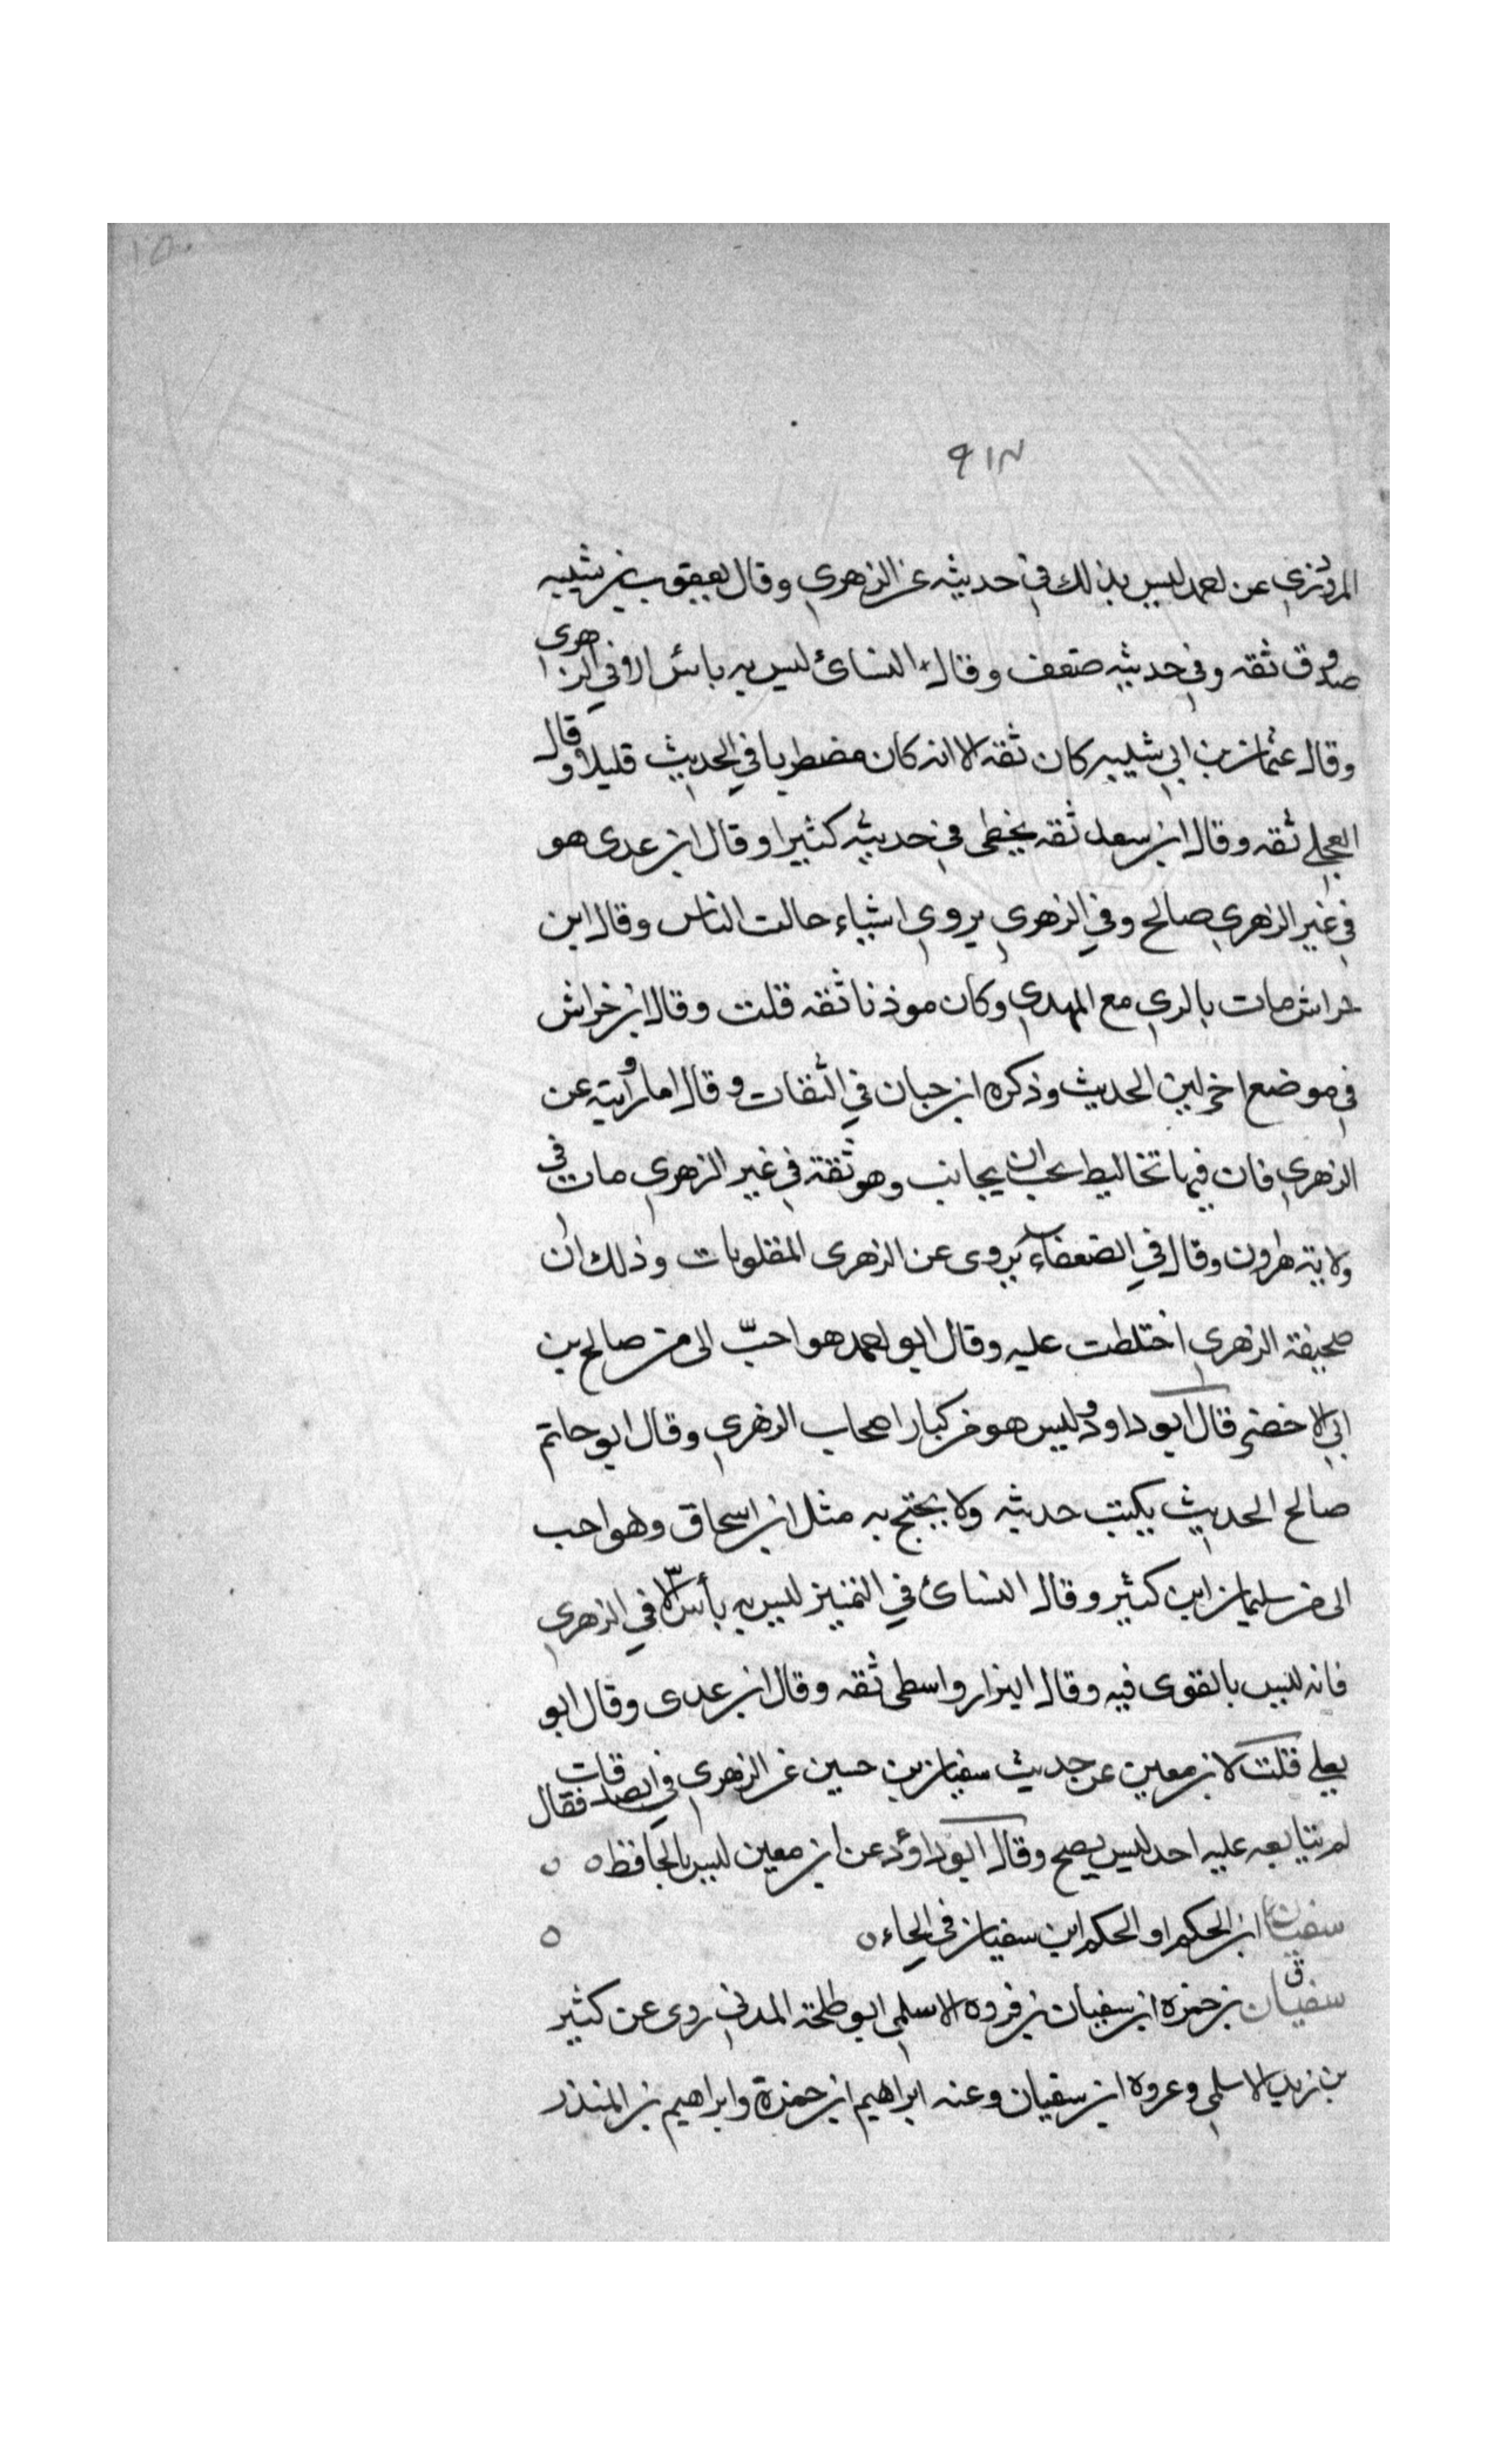 ١٥٠
٩١٣
المروزي عن احمد ليس بذلك في حديثه عن الزهري وقال يعقوب بن شيبه
صدوق ثقه وفي حديثه ضعف وقال النسائ ليس به باس الا في الزهرى
وقال عثمان بن ابي شيبه كان ثقه الا انه كان مضطربا في الحديث قليلا وقال
العجلي ثقه وقال ابن سعد ثقه يخطى في حديثه كثيرا وقال ابن عدى هو
في غير الزهري صالح وفي الزهري يروي اشياء خالف الناس وقال ابن
خراش مات بالري مع المهدي وكان موذنا ثقه قلت وقال ابن خراش
في موضع اخر لين الحديث وذكره ابن حبان في الثقات وقال اما روايته عن
الزهري فان فيها تخاليط يجب ان يجانب وهو ثقة في غير الزهري مات في
ولاية هارون وقال في الضعفاء يروى عن الزهرى المقلوبات وذلك ان
صحيفة الزهري اختلطت عليه وقال ابو احمد هو احبّ الى من صالح بن
ابي الاخضر قال ابو داود وليس هو من كبار اصحاب الزهري وقال ابو حاتم
صالح الحديث يكتب حديثه ولا يحتج به مثل ابن اسحاق وهو احب
الى من سليمان ابن كثير وقال النسائ في التمييز ليس به بأس الّا في الزهري
فانه ليس بالقوى فيه وقال البزار واسطى ثقه وقال ابن عدى وقال ابو
يعلي قلت لابن معين عن حديث سفيان بن حسين عن الزهري في الصدقات فقال
لم يتابعه عليه احد ليس يصح وقال ابو داؤد عن ابن معين ليس بالحافظ ٥ ٥
سفيان ابن الحكم او الحكم ابن سفيان في الحاء ٥ ٥
ق سفيان بن حمزه ابن سفيان بن فروه الاسلمي ابو طلحة المدني روى عن كثير
بن زيد الاسلمي وعروة ابن سفيان وعنه ابراهيم ابن حمزة وابراهيم بن المنذر